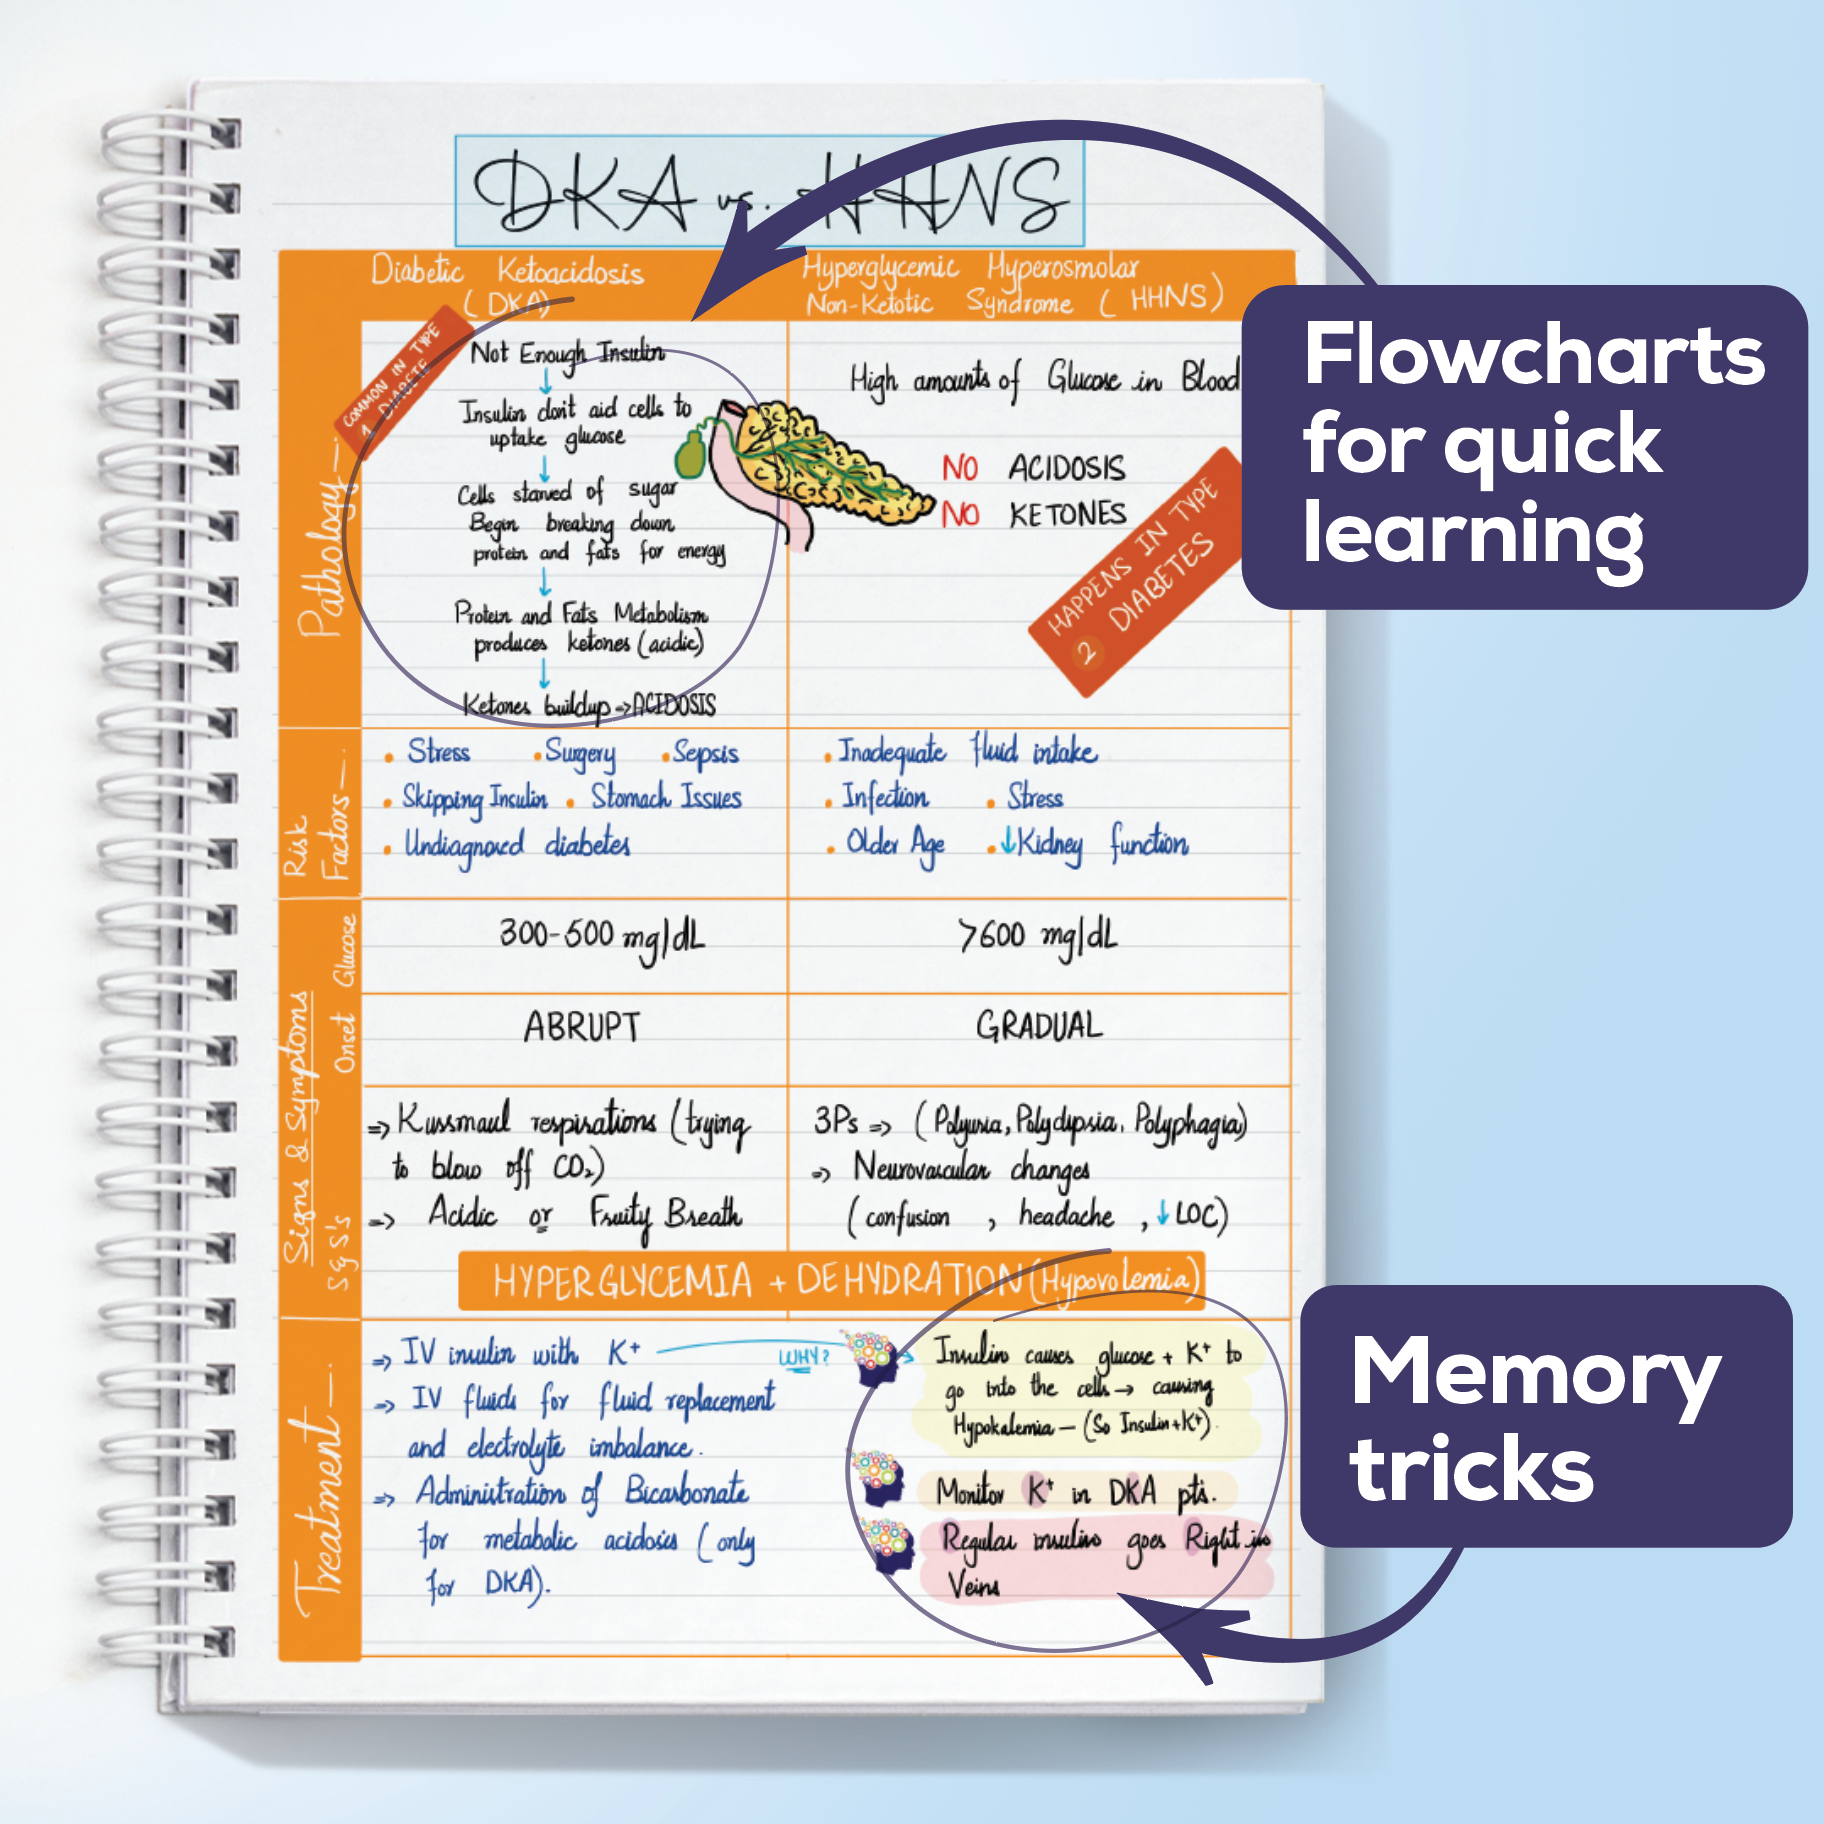 DKA vs. HHNS
Diabetic Ketoacidosis
(DKA)
Hyperglycemic Hyperosmolar
Non-Ketotic Syndrome (HHNS)
Pathology—.
COMMON IN TYPE
1 DIABETE
Not Enough Insulin
↓
Insulin don't aid cells to
uptake glucose
↓
Cells starved of sugar
Begin breaking down
protein and fats for energy
↓
Protein and Fats Metabolism
produces ketones (acidic)
↓
Ketones buildup → ACIDOSIS
High amounts of Glucose in Blood
NO ACIDOSIS
NO KETONES
HAPPENS IN TYPE
2 DIABETES
Flowcharts
for quick
learning
Risk
Factors—.
• Stress • Surgery • Sepsis
• Skipping Insulin • Stomach Issues
• Undiagnosed diabetes
• Inadequate fluid intake
• Infection • Stress
• Older Age • ↓Kidney function
Signs & Symptoms
Glucose
300-500 mg/dL
>600 mg/dL
Onset
ABRUPT
GRADUAL
S & S's
⇒ Kussmaul respirations (trying
to blow off CO₂)
⇒ Acidic or Fruity Breath
3Ps ⇒ (Polyuria, Polydypsia, Polyphagia)
⇒ Neurovascular changes
(confusion, headache, ↓LOC)
HYPERGLYCEMIA + DEHYDRATION (Hypovolemia)
Treatment—.
⇒ IV insulin with K+
⇒ IV fluids for fluid replacement
and electrolyte imbalance.
⇒ Administration of Bicarbonate
for metabolic acidosis (only
for DKA).
WHY?
Insulin causes glucose + K+ to
go into the cells → causing
Hypokalemia — (So Insulin+K+).
Monitor K+ in DKA pts.
Regular insulin goes Right in
Veins
Memory
tricks